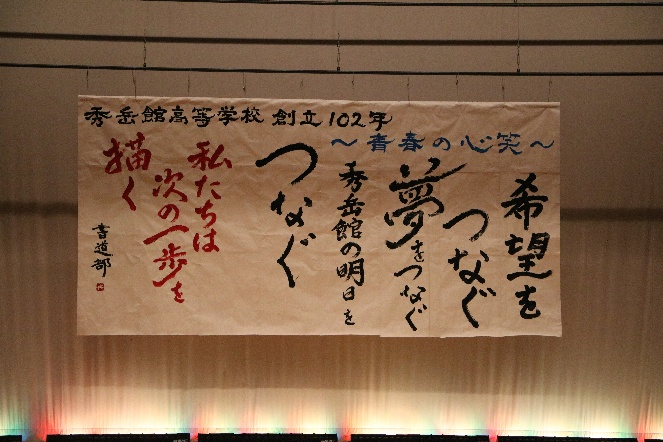 秀岳館高等学校 創立102年
～青春の心笑～
希望を
つなぐ
夢をつなぐ
秀岳館の明日を
つなぐ
私たちは
次の一歩を
描く
書道部